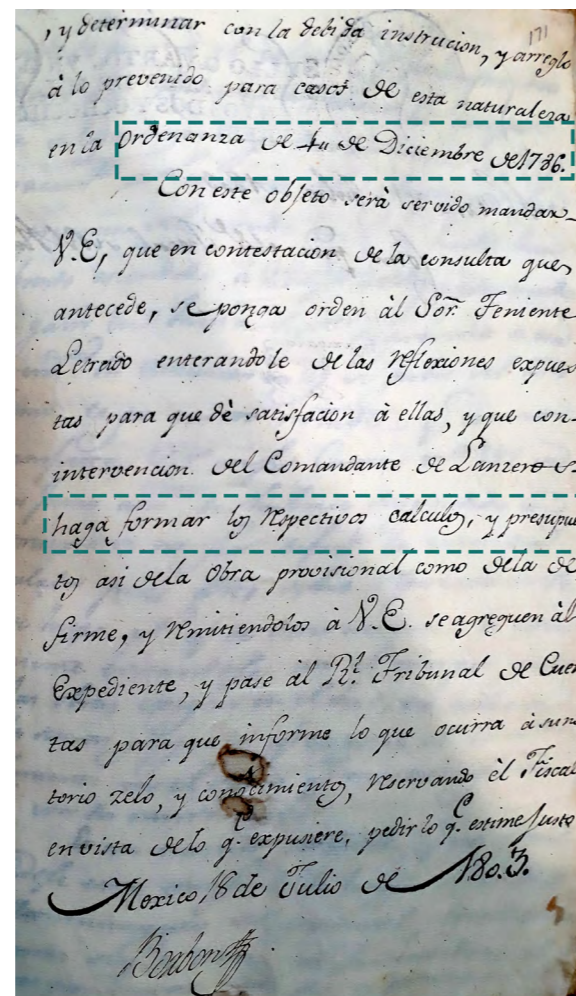 171
, y determinar con la debida instrucion, y arreglo
à lo prevenido para casos de esta naturaleza
en la Ordenanza de 4,, de Diciembre de 1786.
Con este objeto serà servido mandar
V.E, que en contestacion de la consulta que
antecede, se ponga orden àl Sor. Teniente
Letrado enterandole de las reflexiones expues
tas para que dè satisfacion à ellas, y que con-
intervencion del Comandante de Lanzero s
haga formar los respectivos calculos, y presupue
tos asi de la Obra provisional como de la de
firme, y remitiendolos à V.E. se agreguen àl
Expediente, y pase àl Rl. Tribunal de Cuen
tas para que informe lo que ocurra à su no
torio zelo, y conocimiento, reservando èl Fiscal
en vista de lo q. expusiere, pedir lo q. estime justo
Mexico, 18 de Julio de 1803.
Borbon